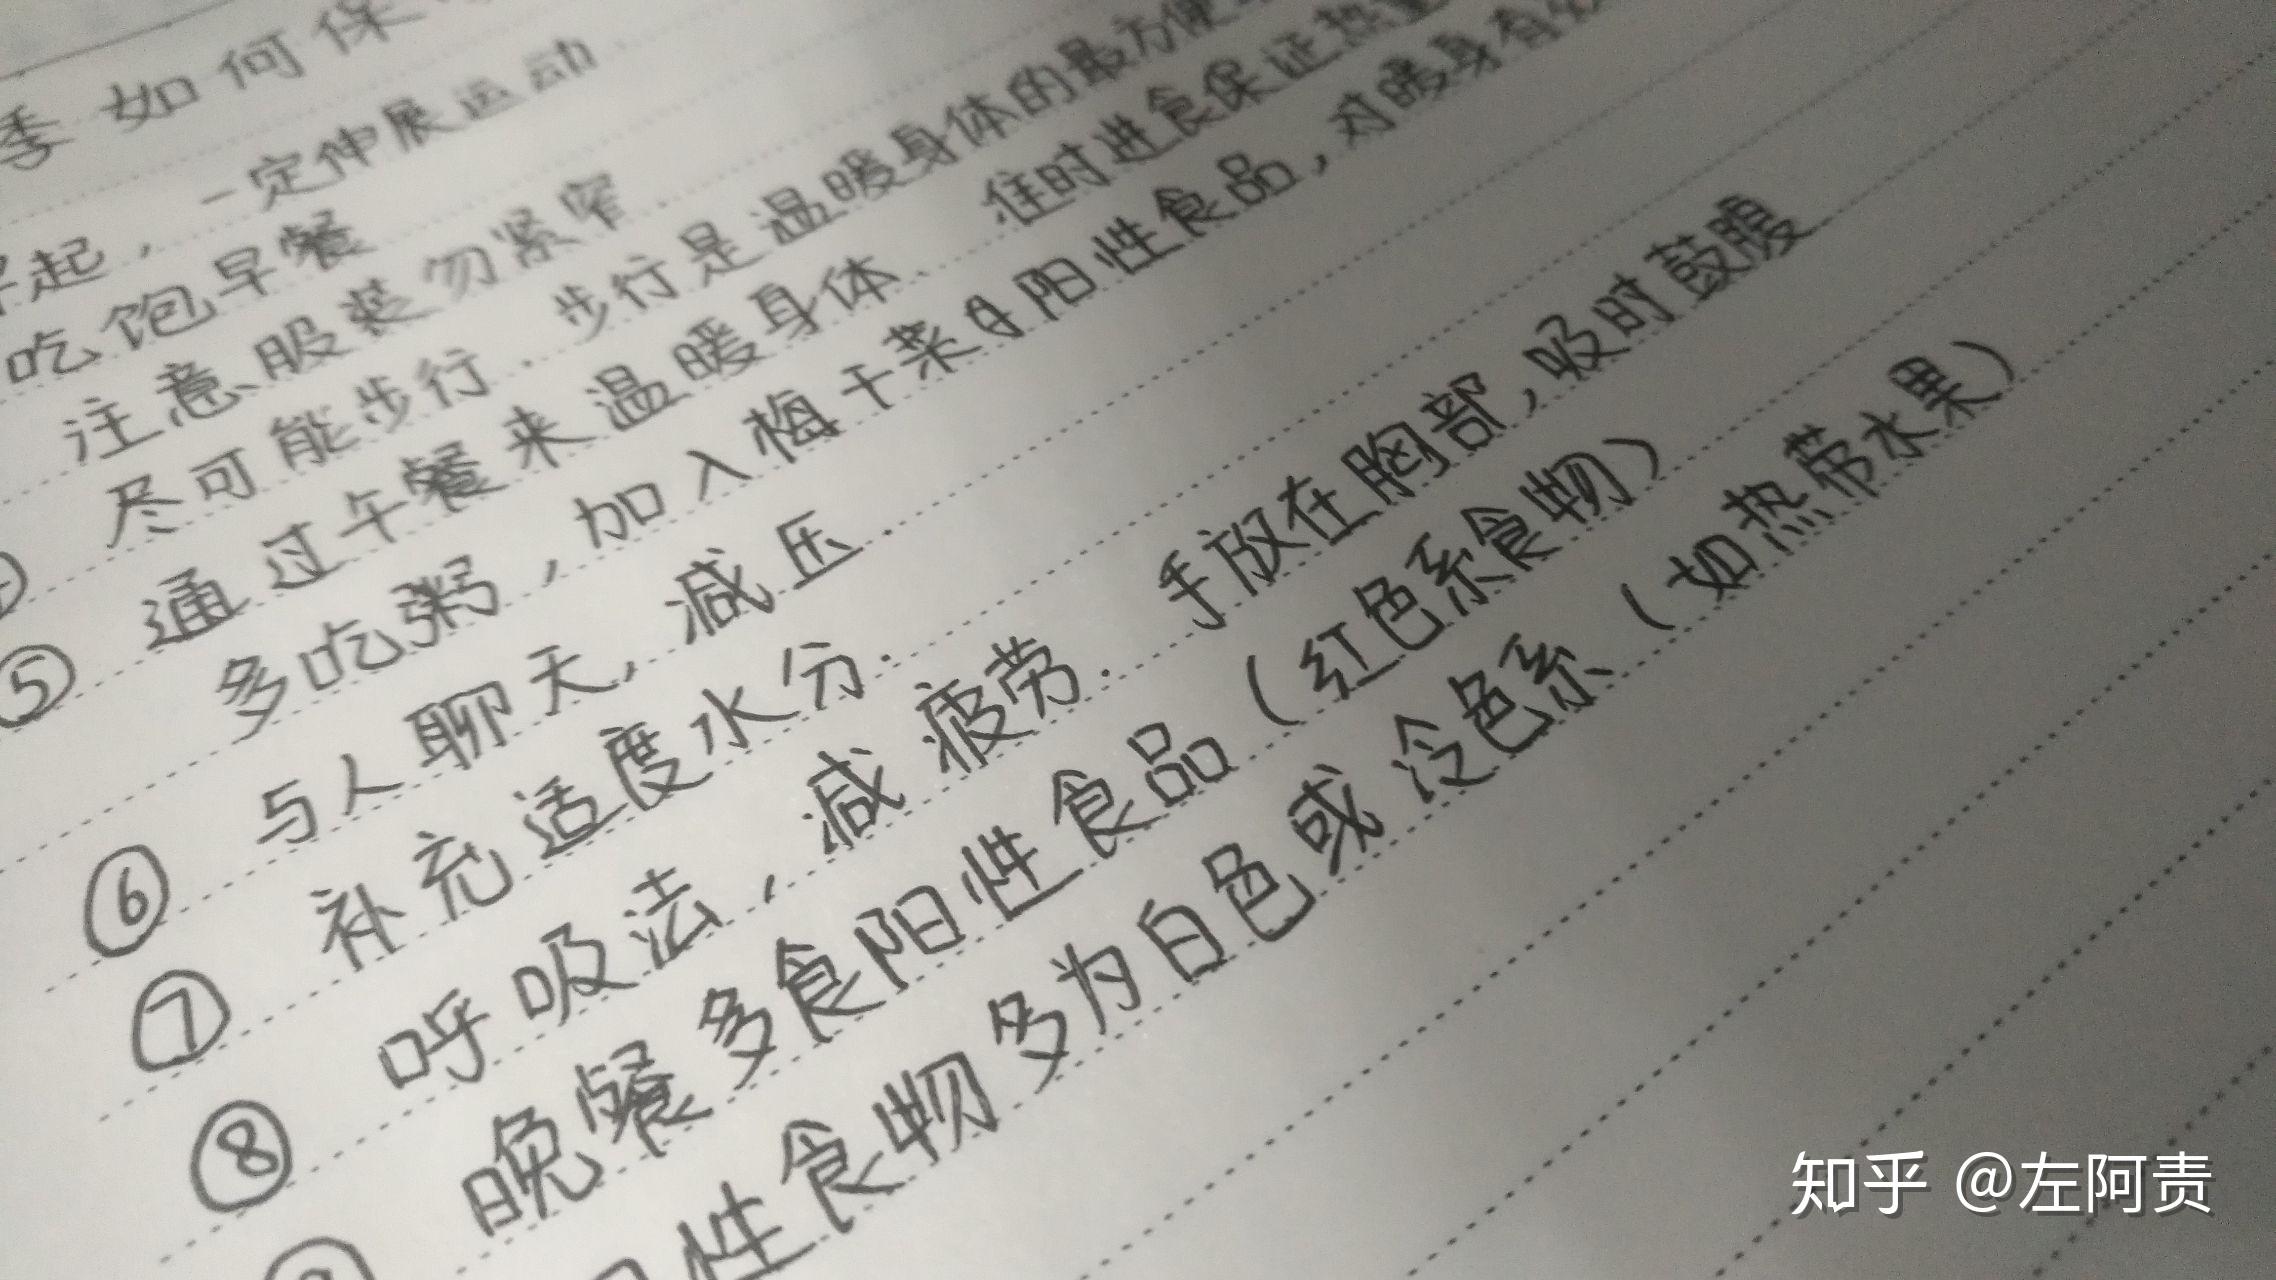 季如何保
起，一定伸展运动
吃饱早餐
注意服装勿紧窄
尽可能步行．步行是温暖身体的最方便
⑤ 通过午餐来温暖身体．住时进食保证热量
多吃粥，加入梅干菜日阳性食品，对暖身有效
⑥ 与人聊天，减压．
⑦ 补充适度水分．
⑧ 呼吸法，减疲劳．手放在胸部，吸时鼓腹
晚餐多食阳性食品（红色系食物）
性食物多为白色或冷色系（如热带水果）
知乎 @左阿责